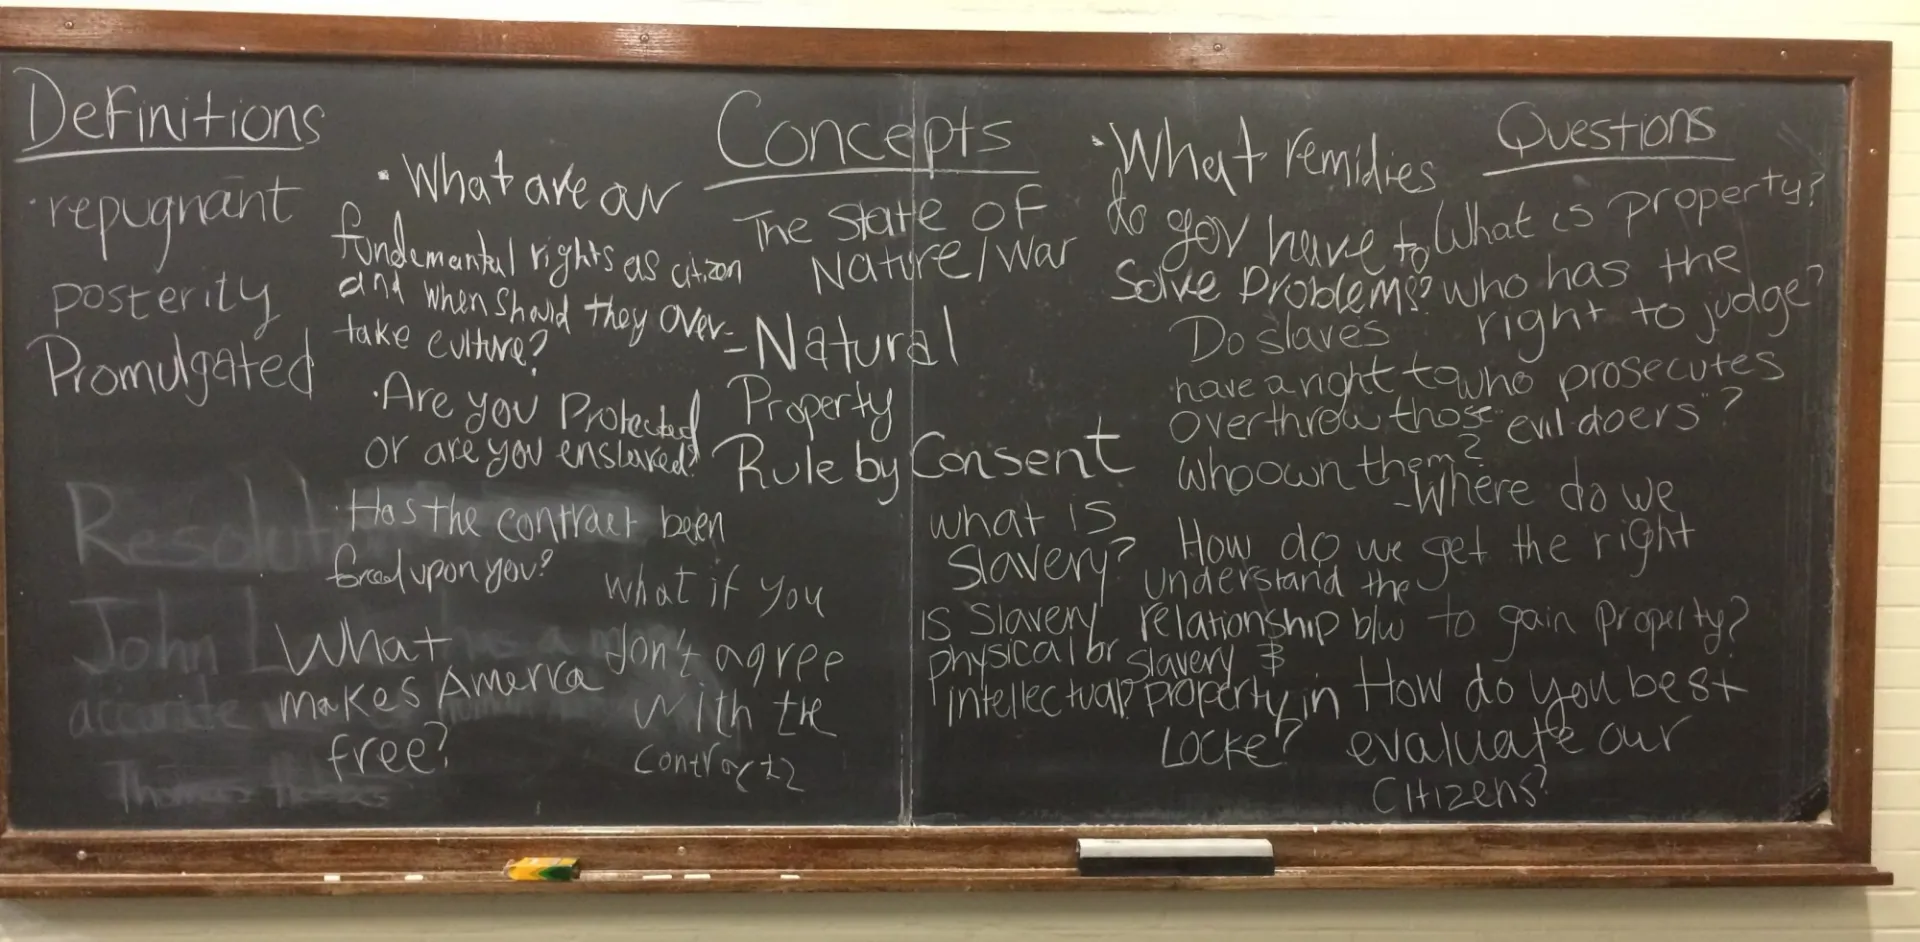 Definitions
repugnant
posterity
Promulgated
• What are our
fundemantal rights as citizen
and when should they over-
take culture?
• Are you Protected
or are you enslaved?
• Has the contract been
forced upon you?
What
makes America
free?
what if you
don't agree
with the
contract?
Resolut
John L
accurate
Concepts
The State of
Nature/War
- Natural
Property
Rule by Consent
what is
Slavery?
Is Slavery
physical or
intellectual?
• What remidies
do gov have to
Solve Problems?
Do slaves
have a right to
overthrow those
who own them?
How do we
understand the
relationship b/w
slavery &
property in
Locke?
Questions
What is property?
who has the
right to judge?
who prosecutes
"evil doers"?
- Where do we
get the right
to gain property?
How do you best
evaluate our
Citizens?